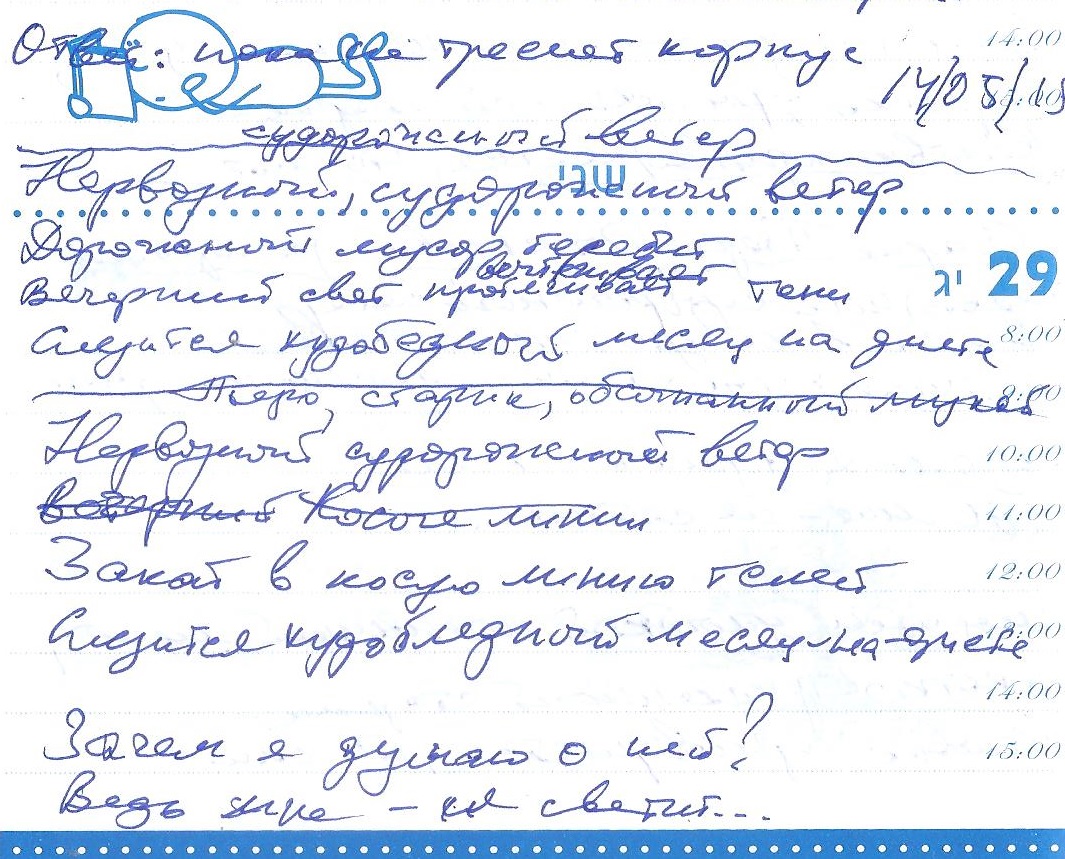 Ответ: пока не треснет корпус
14:00
14/05/15
судорожный ветер
Нервозный, судорожный ветер
שני
Дорожный мусор теребит
вытягивает
Вечерний свет протягивает тени
29 יג
Слезится худобедный месяц на диете
8:00
Пьеро, старик, обсыпанный мукой
9:00
Нервозный судорожный ветер
10:00
вечерний Косые линии
11:00
Закат в косую линию теней
12:00
Слезится худобледный месяц-на-диете
13:00
14:00
Зачем я думаю о ней?
15:00
Ведь мне – не светит...